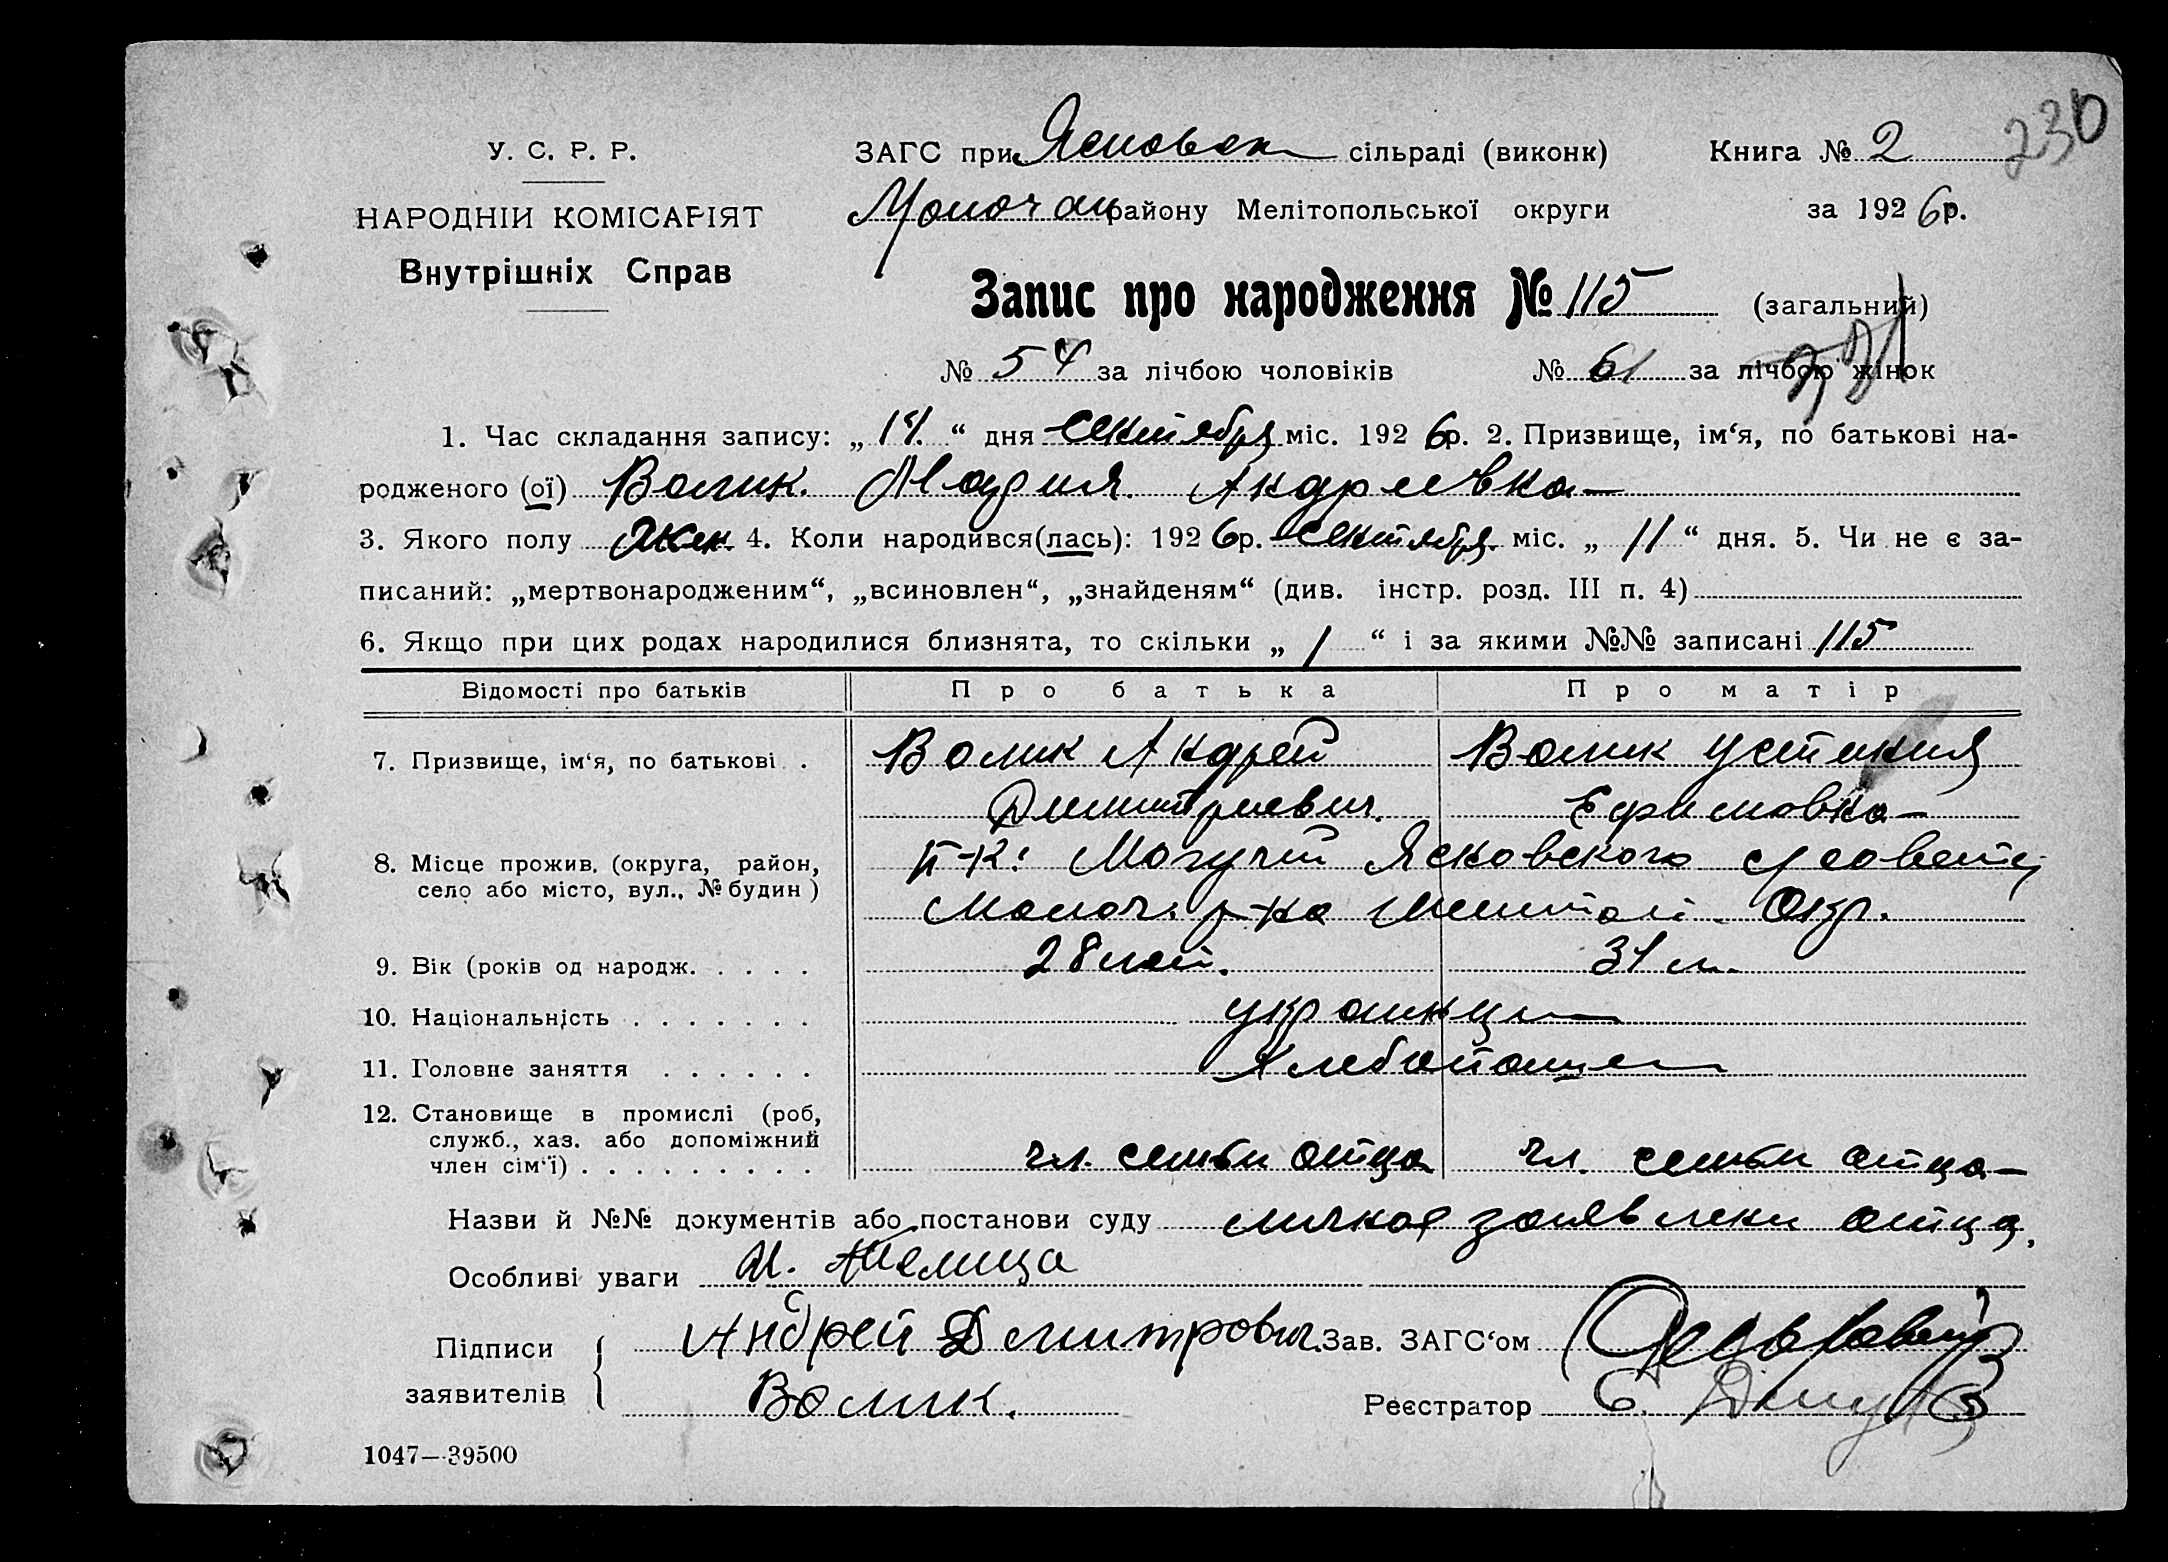 230
У. С. Р. Р.
ЗАГС при Ясновск сільраді (виконк)
Книга № 2
НАРОДНІЙ КОМІСАРІЯТ
Молочан району Мелітопольської округи
за 1926 р.
Внутрішніх Справ
Запис про народження № 115 (загальний)
№ 54 за лічбою чоловіків № 61 за лічбою жінок
1. Час складання запису: „ 14 “ дня сентября міс. 1926 р. 2. Призвище, ім‘я, по батькові на-
родженого (ої) Волик. Мария. Андреевна
3. Якого полу жен. 4. Коли народився(лась): 1926 р. сентября міс. „ 11 “ дня. 5. Чи не є за-
писаний: „мертвонародженим“, „всиновлен“, „знайденям“ (див. інстр. розд. III п. 4)
6. Якщо при цих родах народилися близнята, то скільки „ 1 “ і за якими №№ записані 115
Відомості про батьків Про батька Про матір
7. Призвище, ім‘я, по батькові . Волик Андрей Волик Устиния
Димитриевич. Ефимовна
8. Місце прожив. (округа, район, Могучий Ясновского
село або місто, вул., № будин)
Молоч. р-на Мелитоп. Окр.
9. Вік (років од народж. . . . . 28 лет. 31 л.
10. Національність . . . . . . . украинцы
11. Головне заняття . . . . . . Хлебопашец
12. Становище в промислі (роб,
служб., хаз. або допоміжний
член сім‘ї) . . . . . . . . . чл. семьи отца чл. семьи отца
Назви й №№ документів або постанови суду личное заявлени отца.
Особливі уваги
Підписи Андрей Дмитрович. Зав. ЗАГС‘ом
заявителів Волик.
Реєстратор
1047—39500